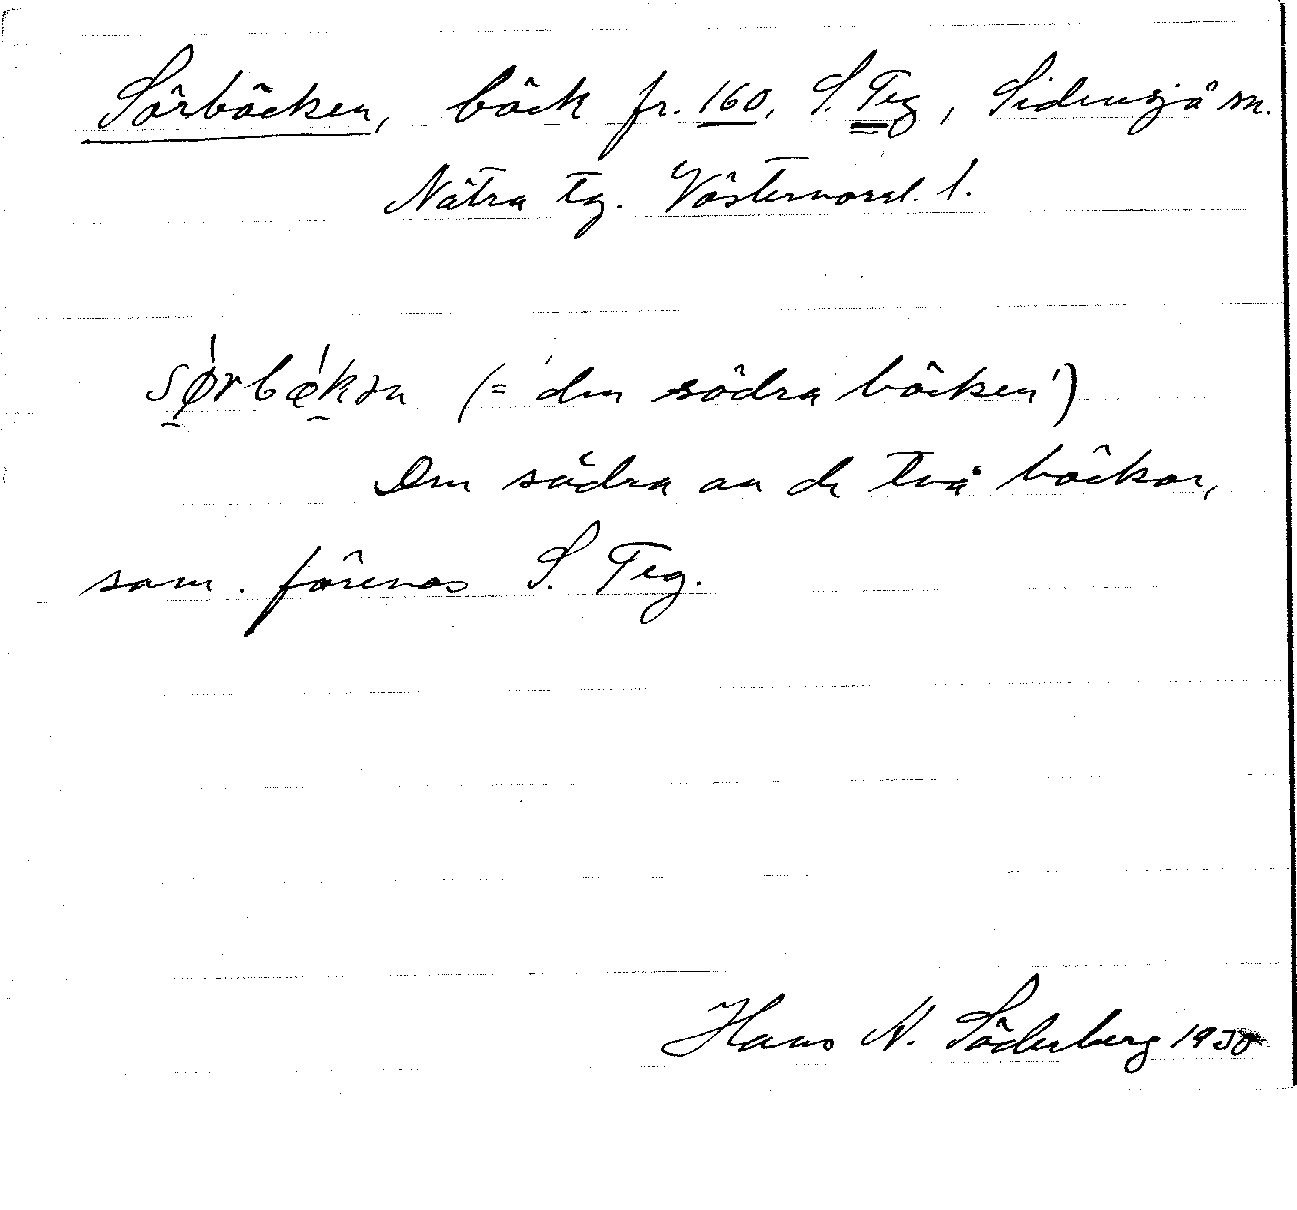 Sörbäcken, bäck fr. 160, S. Teg, Sidensjö sn.
Nätra tg. Västernorrl. l.
sø̀rbækən (= 'den södra bäcken')
Den södra av de två bäckar,
som förenas S. Teg.
Hans N. Söderberg 1930